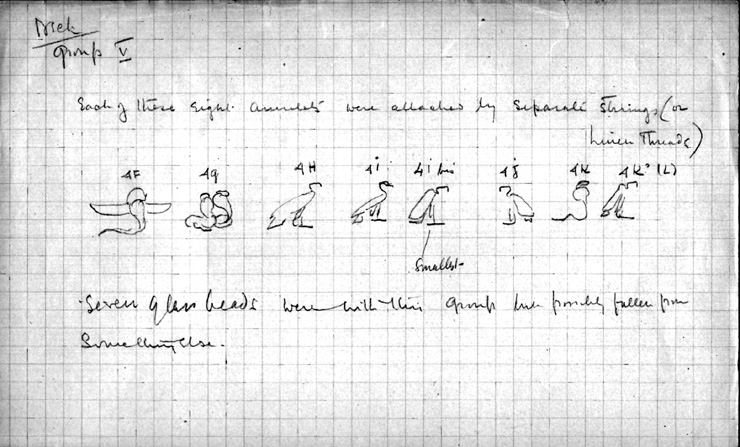 Neck
Group V
Each of these eight amulets were attached by separate strings (or
linen threads)
4F 4G 4H 4I 4I bis 4J 4K 4K² (L)
Smallest
Seven glass beads were with this group but possibly fallen from
something else.